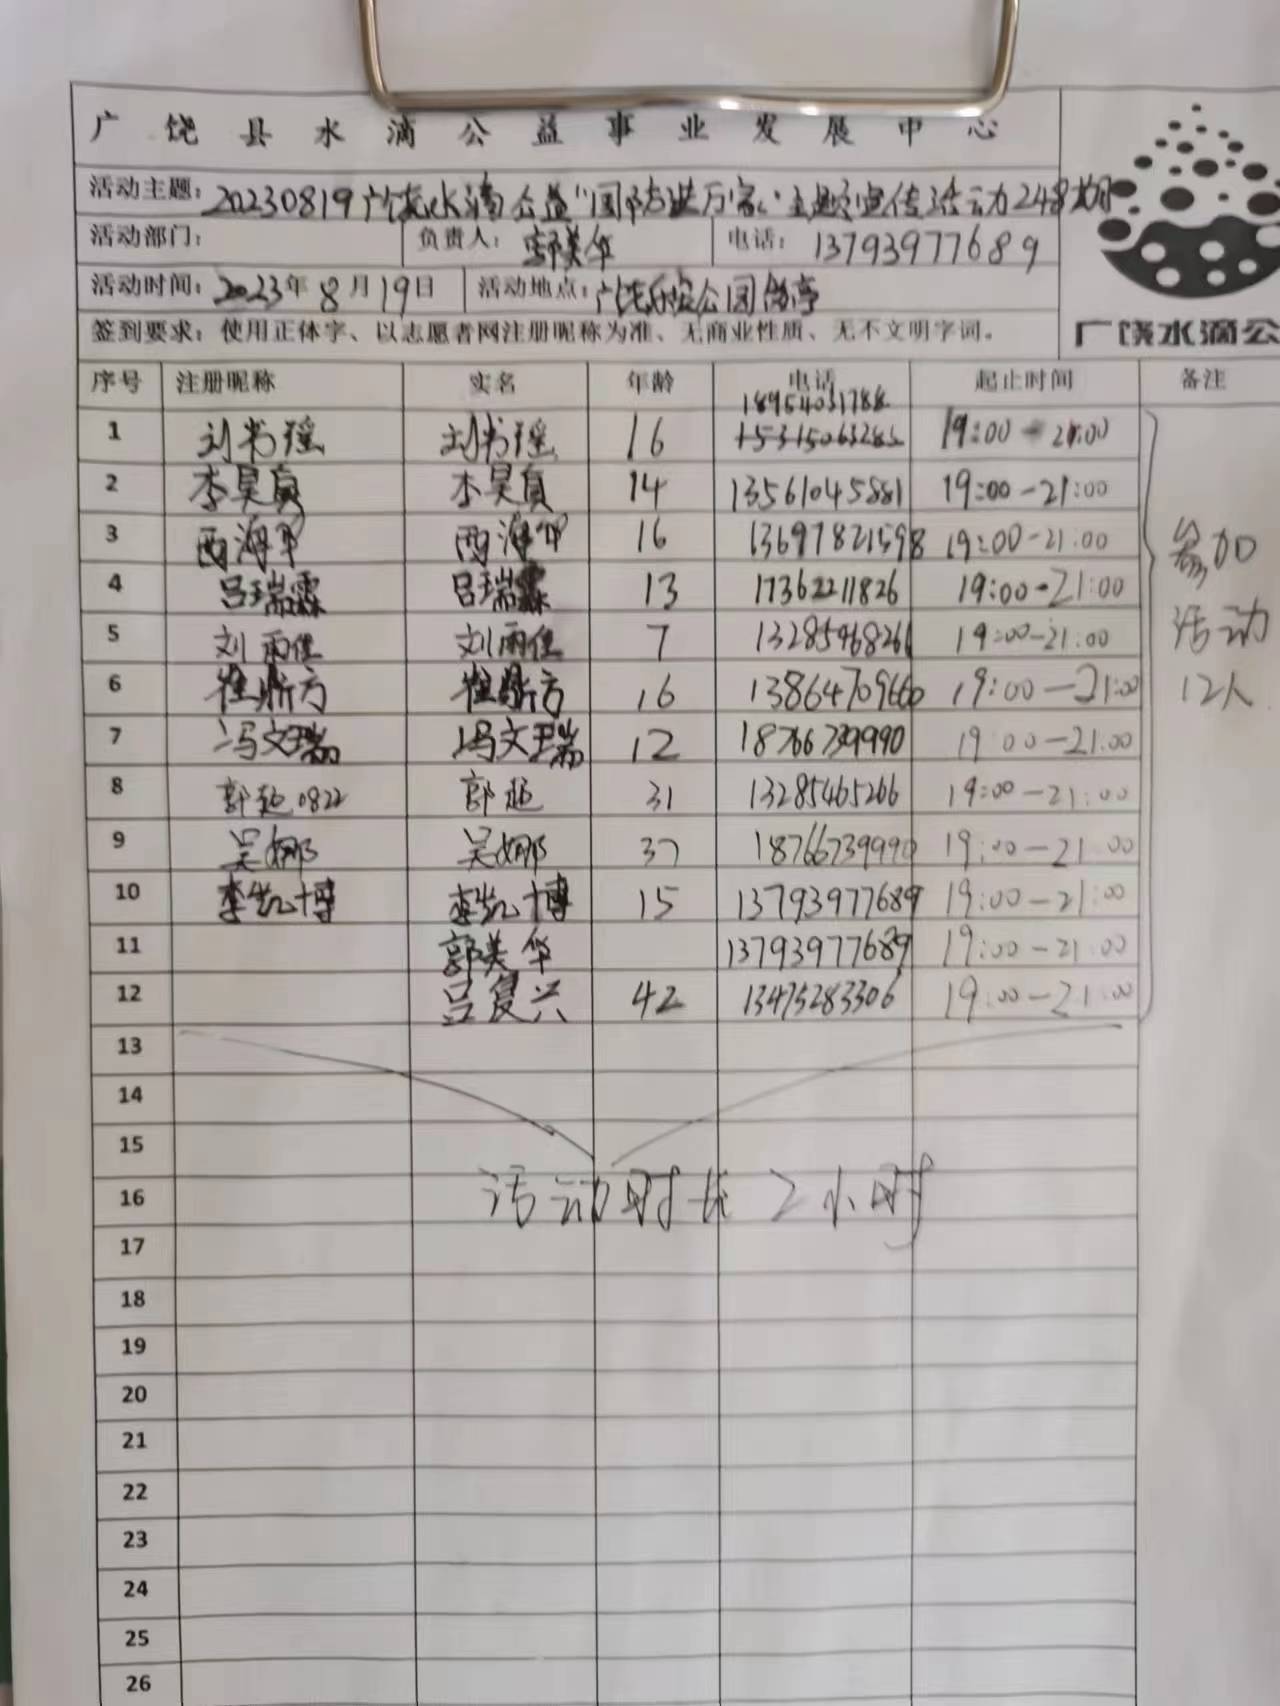 广饶县水滴公益事业发展中心
活动主题：20230819广饶水滴公益"国防进万家"主题宣传活动248期
活动部门： 负责人：郭美华 电话：13793977689
活动时间：2023年8月19日 活动地点：广饶乐安公园
签到要求：使用正体字、以志愿者网注册昵称为准、无商业性质、无不文明字词。
广饶水滴公
序号 注册昵称 实名 年龄 电话 起止时间 备注
18954031788
1 刘书瑶 刘书瑶 16 15315063285 19:00-21:00
2 李昊真 李昊真 14 13561045881 19:00-21:00
3 16 13697821598 19:00-21:00
4 吕瑞霖 吕瑞霖 13 17362211826 19:00-21:00
5 刘雨佳 刘雨佳 7 13285468261 19:00-21:00
6 崔鼎方 崔鼎方 16 13864709660 19:00-21:00
7 冯文瑞 冯文瑞 12 18766739990 19:00-21:00
8 郭超0822 郭超 31 13285465266 19:00-21:00
9 吴娜 吴娜 37 18766739990 19:00-21:00
10 李凯博 李凯博 15 13793977689 19:00-21:00
11 郭美华 13793977689 19:00-21:00
12 吕复兴 42 13475283306 19:00-21:00
参加
活动
12人
13
14
15
16 活动时长2小时
17
18
19
20
21
22
23
24
25
26